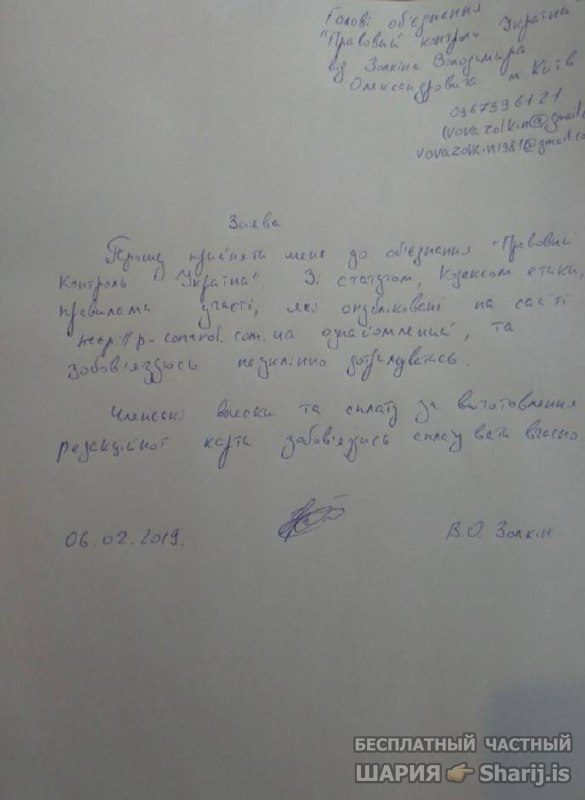 Голові об'єднання
"Правовий контроль Україна"
від Золкіна Володимира
Олександровича м. Київ
0967396121
(vovazolkin@gmail.
vovazolkin1981@gmail.co
Заява
Прошу прийняти мене до об'єднання "Правовий
Контроль Україна". Зі статутом, Кодексом етики,
правилами участі, які опубліковані на сайті
http://p-control.com.ua ознайомлений, та
зобов'язуюсь неухильно дотримуватись.
Членські внески та сплату за виготовлення
редакційної карти зобов'язуюсь сплачувати вчасно.
06.02.2019. В.О. Золкін
БЕСПЛАТНЫЙ ЧАСТНЫЙ
ШАРИЯ 👉 Sharij.is